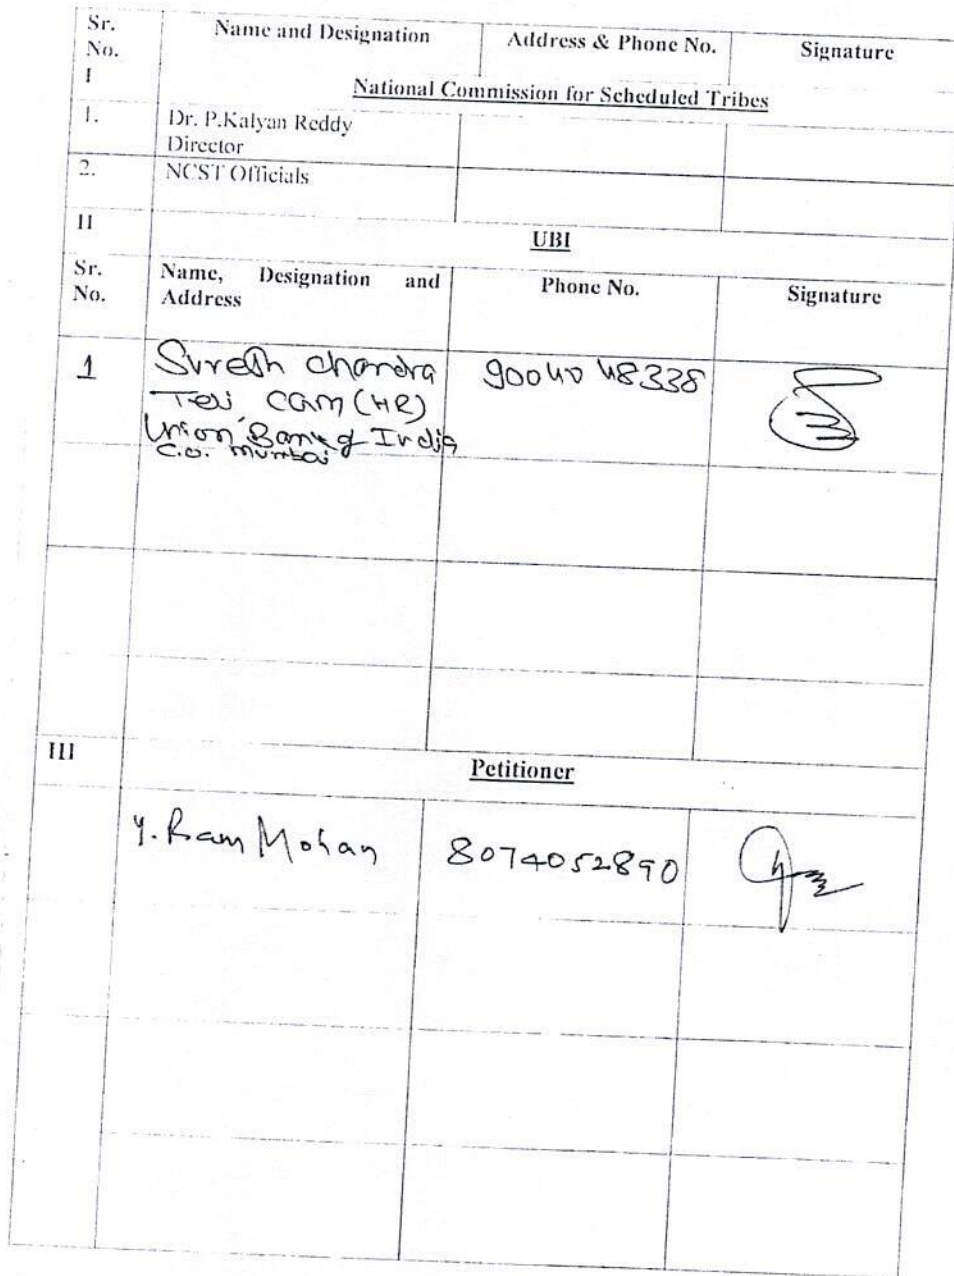 Sr. No. Name and Designation Address & Phone No. Signature
I National Commission for Scheduled Tribes
1. Dr. P.Kalyan Reddy
Director
2. NCST Officials
II UBI
Sr. No. Name, Designation and Address Phone No. Signature
1 Suresh Chandra 90040 48338
Teji, CGM (HR)
Union Bank of India
C.O. Mumbai
III Petitioner
Y. Ram Mohan 8074052890